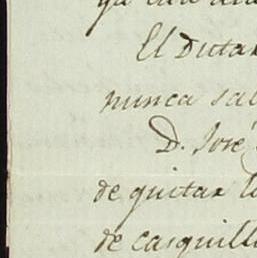 El Dutax
nunca sal
D. José
de quitax l
de casquill